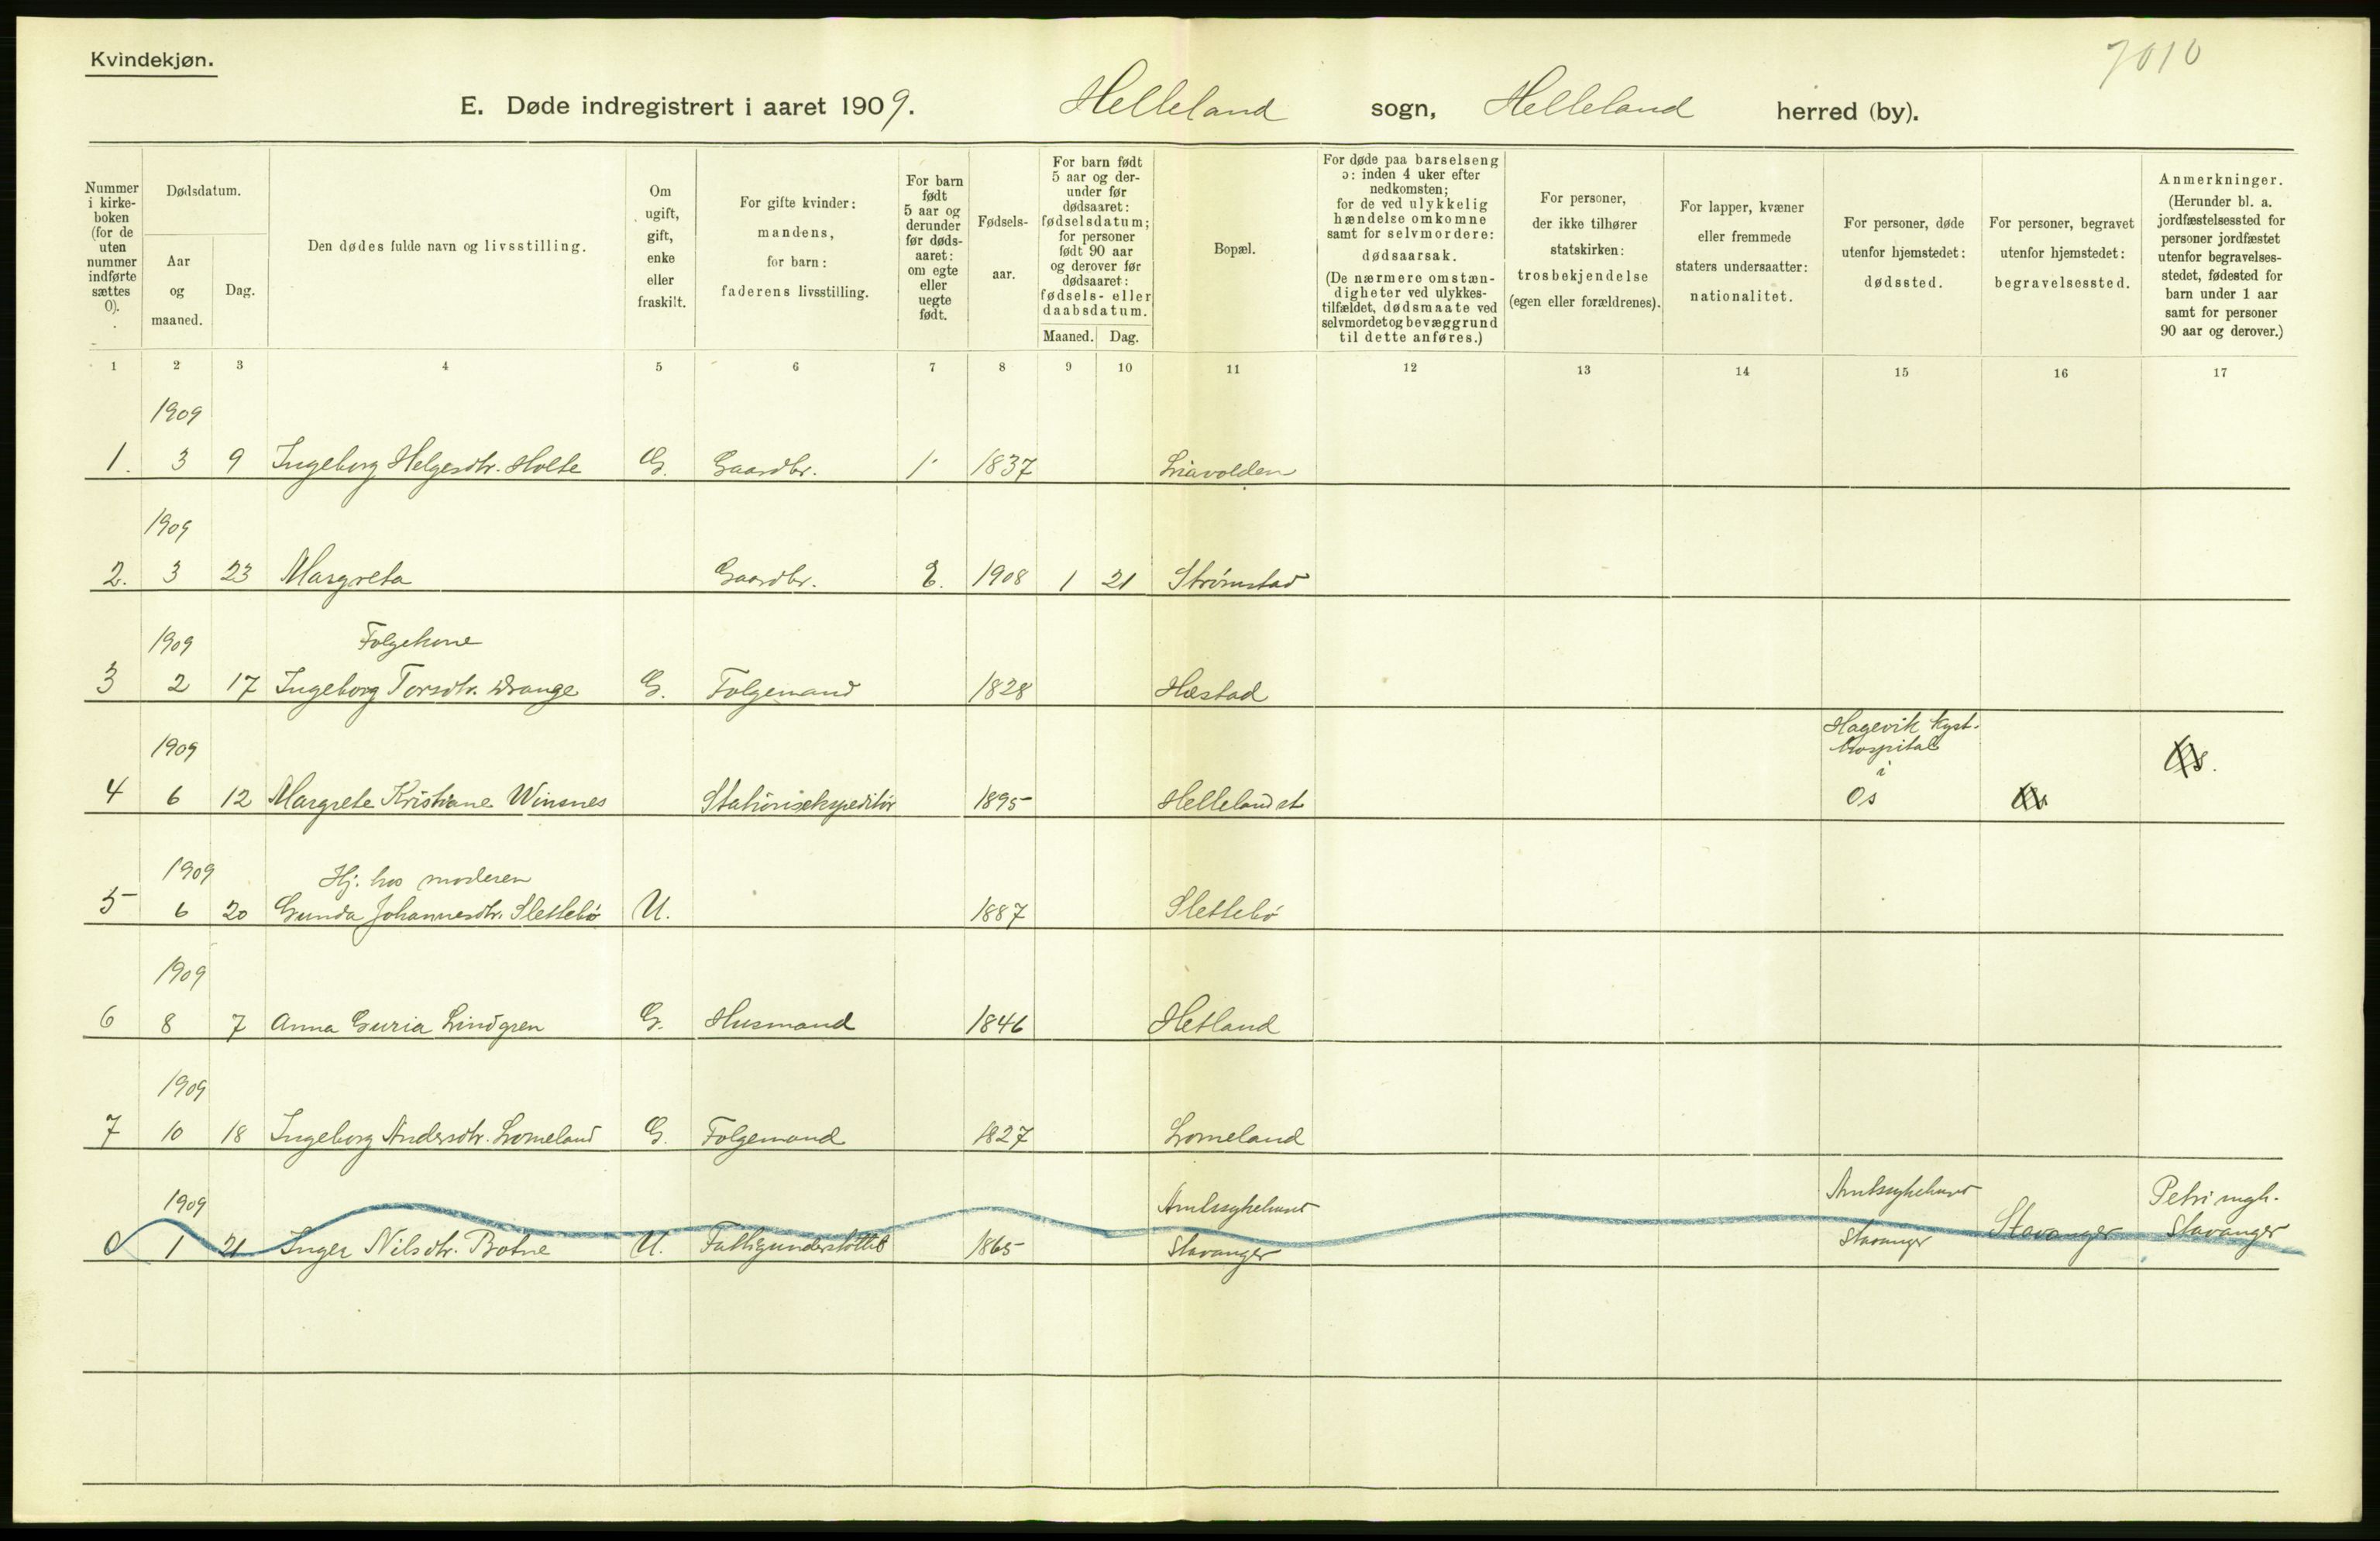 Kvindekjøn.
7010
E. Døde indregistrert i aaret 1909. Helleland sogn, Helleland herred (by).
Nummer i kirke-boken (for de uten nummer indførte sættes 0).
Dødsdatum.
Aar og maaned.
Dag.
Den dødes fulde navn og livsstilling.
Om ugift, gift, enke eller fraskilt.
For gifte kvinder: mandens, for barn: faderens livsstilling.
For barn født 5 aar og derunder før døds-aaret: om egte eller uegte født.
Fødsels-aar.
For barn født 5 aar og der-under før dødsaaret: fødselsdatum; for personer født 90 aar og derover før dødsaaret: fødsels- eller daabsdatum.
Maaned. Dag.
Bopæl.
For døde paa barselseng ɔ: inden 4 uker efter nedkomsten; for de ved ulykkelig hændelse omkomne samt for selvmordere: dødsaarsak.
(De nærmere omstæn-digheter ved ulykkes-tilfældet, dødsmaate ved selvmordet og bevæggrund til dette anføres.)
For personer, der ikke tilhører statskirken: trosbekjendelse (egen eller forældrenes).
For lapper, kvæner eller fremmede staters undersaatter: nationalitet.
For personer, døde utenfor hjemstedet: dødssted.
For personer, begravet utenfor hjemstedet: begravelsessted.
Anmerkninger.
(Herunder bl. a. jordfæstelsessted for personer jordfæstet utenfor begravelses-stedet, fødested for barn under 1 aar samt for personer 90 aar og derover.)
1 2 3 4 5 6 7 8 9 10 11 12 13 14 15 16 17
1909
1. 3 9 Ingeborg Helgesdtr. Holte G. Gaardbr. 1837 Liavolden
1909
2. 3 23 Margreta Gaardbr. E. 1908 1 21 Strømstad
1909 Folgekone
3 2 17 Ingeborg Torsdtr. Drange G. Folgemand 1828 Hæstad
1909 Hagevik Kyst-
hospital
i
4 6 12 Margrete Kristiane Winsnes Stationsekspeditør 1895 Helleland st Os
1909 Hj. hos moderen
5 6 20 Gunda Johannesdtr. Slettebø U. 1887 Slettebø
1909
6 8 7 Anna Guria Lindgren G. Husmand 1846 Hetland
1909
7 10 18 Ingeborg Andersdtr. Lomeland G. Folgemand 1827 Lomeland
1909 Amtssykehuset Amtssykehuset Petri mgh.
0 1 21 Inger Nilsdtr. Botne U. Fattigunderstøttet 1865 Stavanger Stavanger Stavanger Stavanger